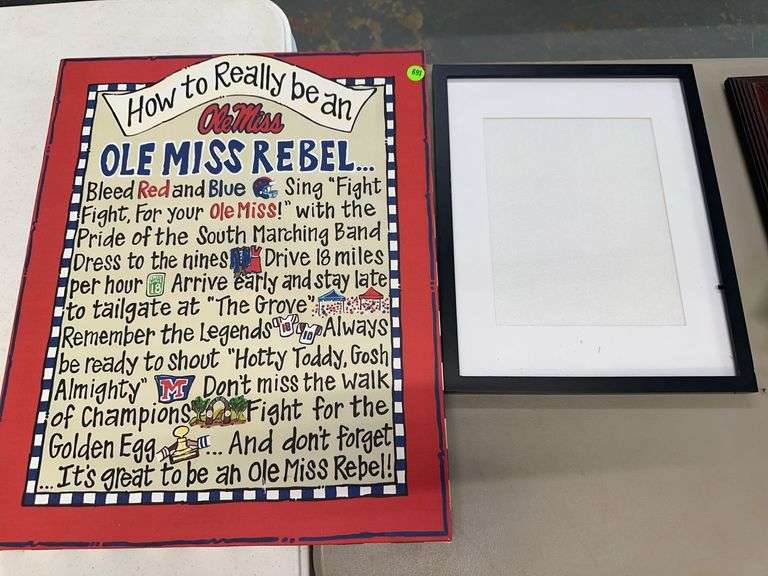 How to Really be an
Ole Miss
OLE MISS REBEL...
Bleed Red and Blue Sing "Fight
Fight, For your Ole Miss!" with the
Pride of the South Marching Band
Dress to the nines Drive 18 miles
per hour 18 Arrive early and stay late
to tailgate at "The Grove"
Remember the Legends 18 10 Always
be ready to shout "Hotty Toddy, Gosh
Almighty" M Don't miss the Walk
of Champions Fight for the
Golden Egg ... And don't forget
... It's great to be an Ole Miss Rebel!
691